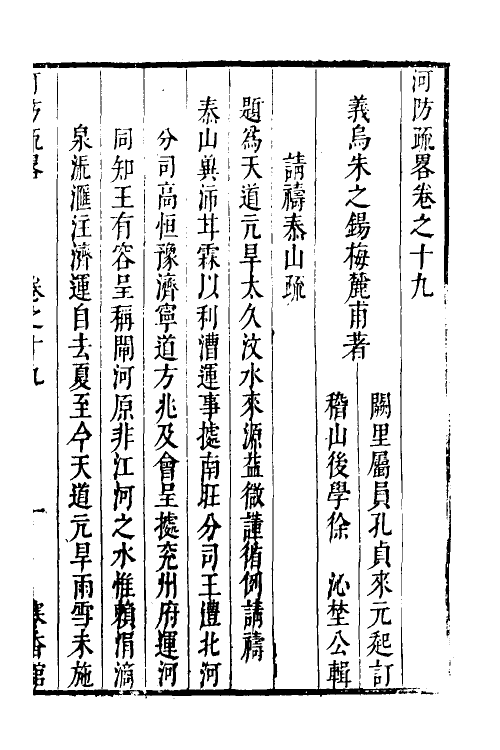 河防疏畧卷之十九
義烏朱之錫梅麓甫著
闕里屬員孔貞來元起訂
稽山後學徐　沁埜公輯
請禱泰山疏
題爲天道亢旱太久汶水來源益微謹循例請禱
泰山兾沛甘霖以利漕運事據南旺分司王澧北河
分司高恒豫濟寧道方兆及會呈據兖州府運河
同知王有容呈稱閘河原非江河之水惟賴涓滴
泉流滙注濟運自去夏至今天道亢旱雨雪未施
河防疏畧　卷之十九　一　寒香館